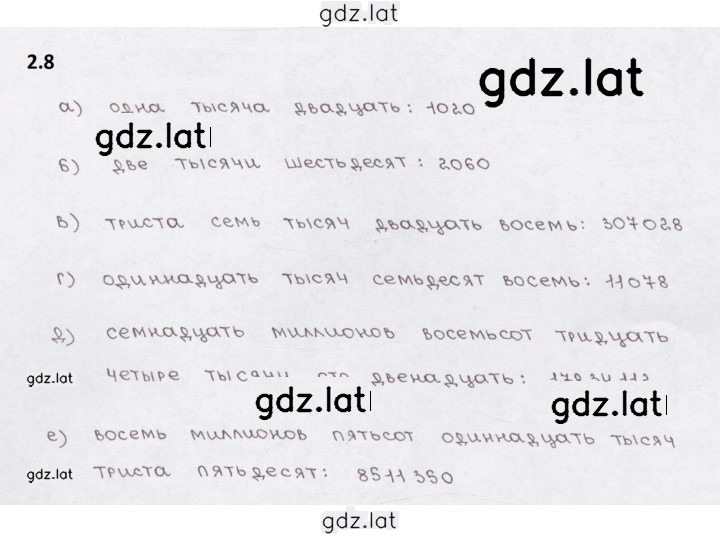 gdz.lat
2.8
gdz.lat
а) одна тысяча двадцать: 1020
gdz.lat
б) две тысячи шестьдесят: 2060
в) триста семь тысяч двадцать восемь: 307028
г) одиннадцать тысяч семьдесят восемь: 11078
д) семнадцать миллионов восемьсот тридцать
gdz.lat четыре двенадцать:
gdz.lat gdz.lat
е) восемь миллионов пятьсот одиннадцать тысяч
gdz.lat триста пятьдесят: 8511350
gdz.lat